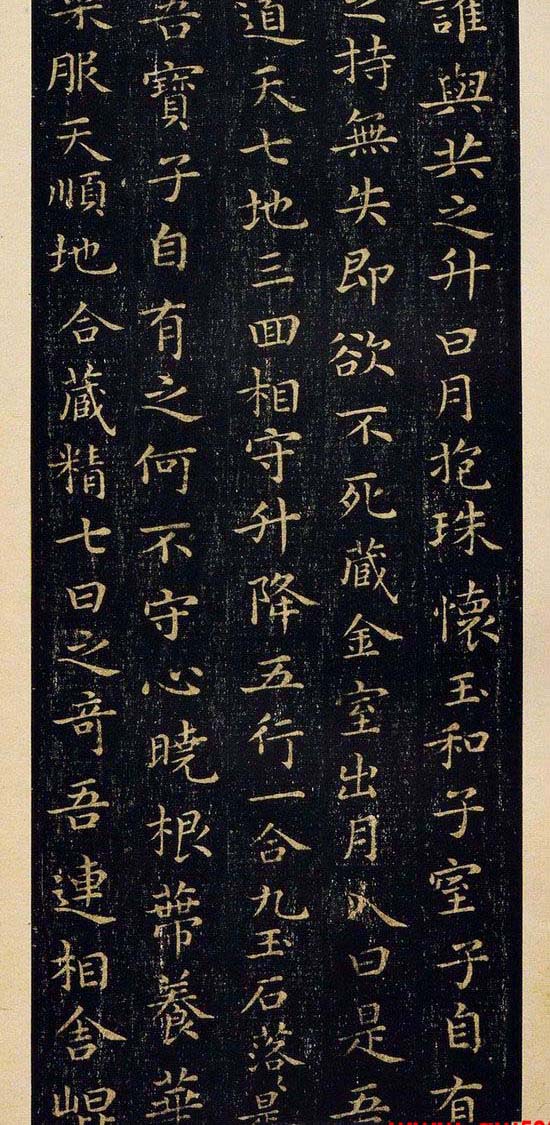 誰與共之升日月抱珠懷玉和子室子自有
之持無失即欲不死藏金室出月入日是吾
道天七地三回相守升降五行一合九玉石落落是
吾寶子自有之何不守心曉根蒂養華
采服天順地合藏精七日之奇吾連相舍崐